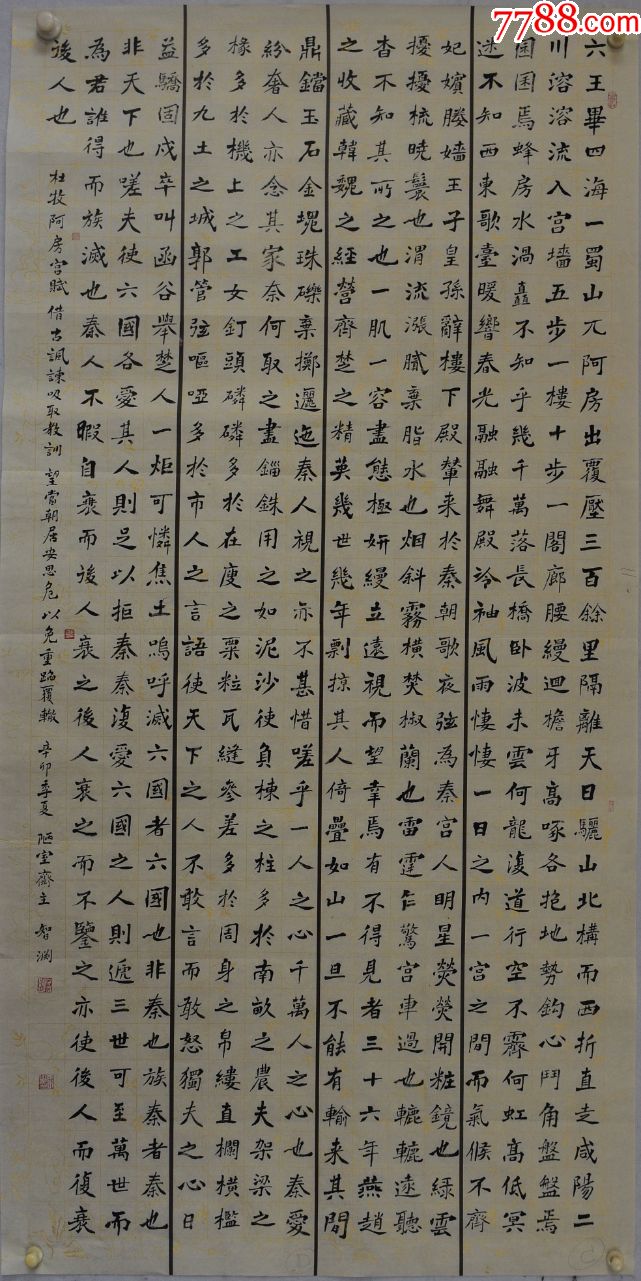 7788.com
六王畢四海一蜀山兀阿房出覆壓三百餘里隔離天日驪山北構而西折直走咸陽二
川溶溶流入宫墻五步一樓十步一閣廊腰縵迴檐牙高啄各抱地勢鈎心鬥角盤盤焉
囷囷焉蜂房水渦矗不知乎幾千萬落長橋卧波未雲何龍復道行空不霽何虹高低冥
迷不知西東歌臺暖響春光融融舞殿冷袖風雨悽悽一日之内一宫之間而氣候不齊
妃嬪媵嬙王子皇孫辭樓下殿輦来於秦朝歌夜弦為秦宫人明星熒熒開粧鏡也緑雲
擾擾梳曉鬟也渭流漲膩棄脂水也烟斜霧橫焚椒蘭也雷霆乍驚宫車過也轆轆遠聽
杳不知其所之也一肌一容盡態極妍縵立遠視而望幸焉有不得見者三十六年燕趙
之收藏韓魏之經營齊楚之精英幾世幾年剽掠其人倚疊如山一旦不能有輸来其間
鼎鐺玉石金塊珠礫棄擲邐迤秦人視之亦不甚惜嗟乎一人之心千萬人之心也秦愛
紛奢人亦念其家奈何取之盡錙銖用之如泥沙使負棟之柱多於南畝之農夫架梁之
椽多於機上之工女釘頭磷磷多於在庾之粟粒瓦縫參差多於周身之帛縷直欄橫檻
多於九土之城郭管弦嘔啞多於市人之言語使天下之人不敢言而敢怒獨夫之心日
益驕固戍卒叫函谷舉楚人一炬可憐焦土嗚呼滅六國者六國也非秦也族秦者秦也
非天下也嗟夫使六國各愛其人則足以拒秦秦復愛六國之人則遞三世可至萬世而
為君誰得而族滅也秦人不暇自哀而後人哀之後人哀之而不鑒之亦使後人而復哀
後人也
杜牧阿房宫賦借古諷諫吸取教訓望當朝居安思危以免重蹈覆轍 辛卯季夏 陋室齋主 智淵